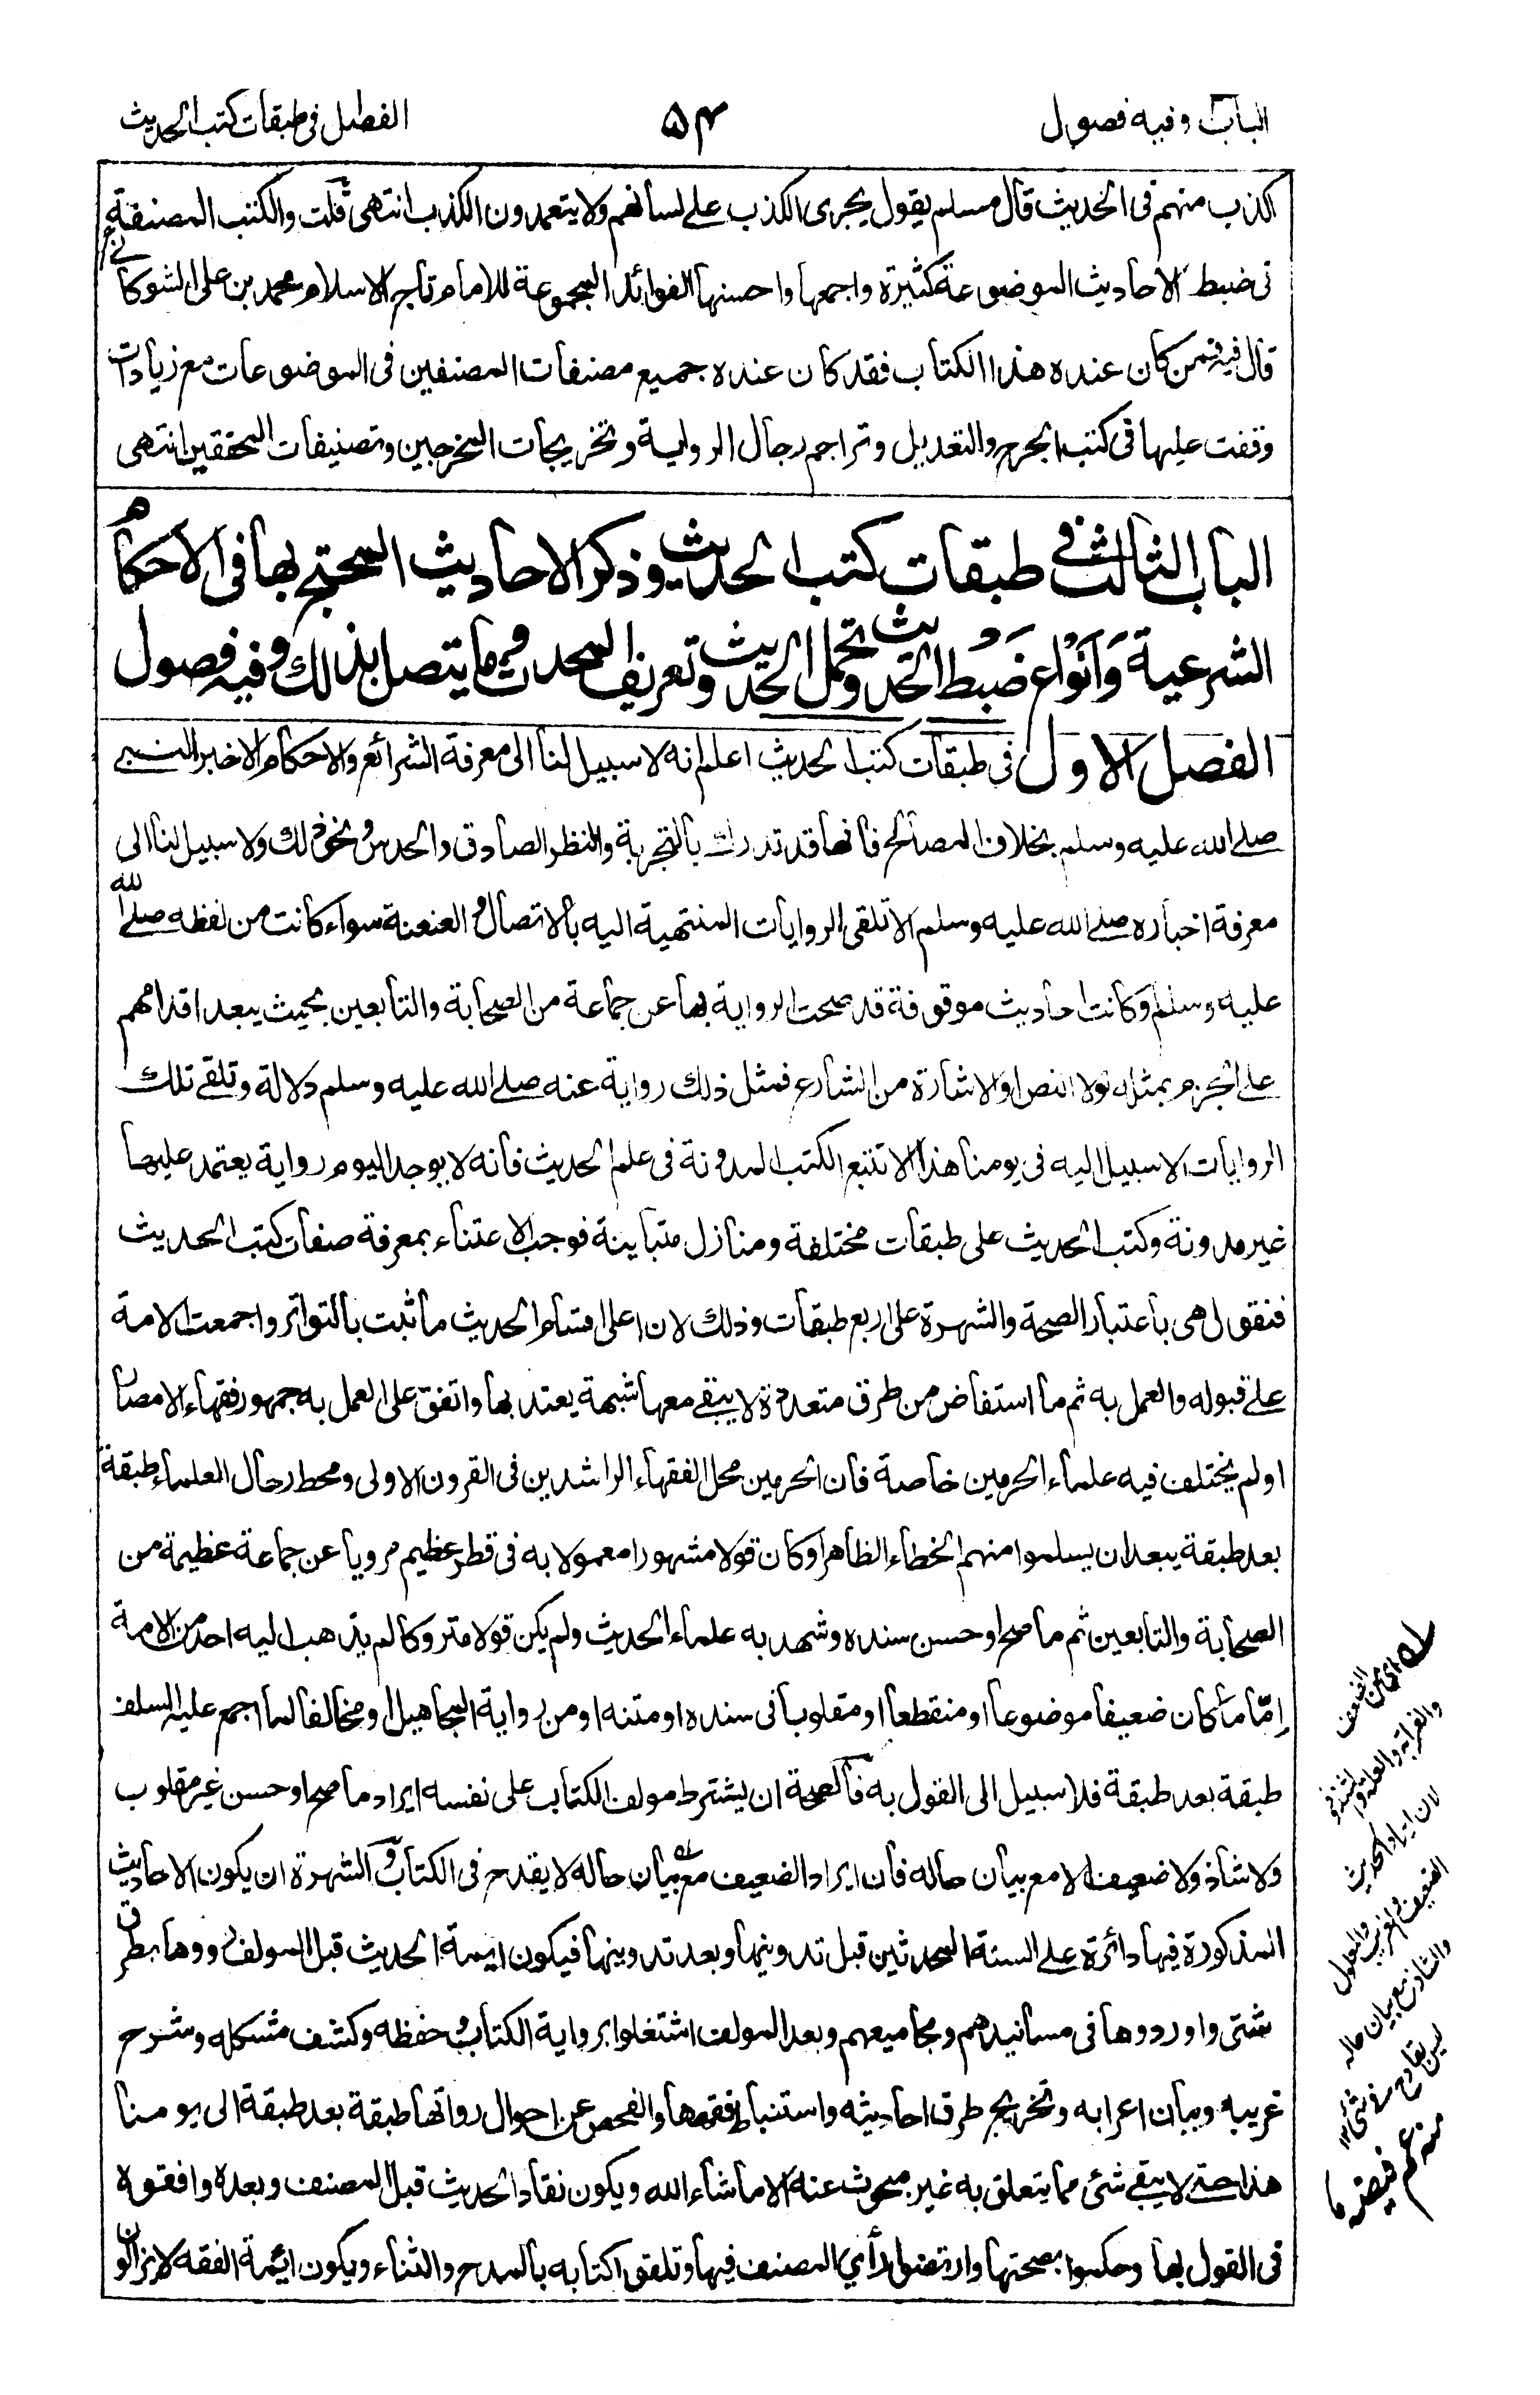 الباب وفيه فصول
٥٤
الفصل في طبقات كتب الحديث
الكذب منهم في الحديث قال مسلم يقول يجرى الكذب على لسانهم ولا يتعمدون الكذب انتهى قلت والكتب المصنفة
في ضبط الاحاديث الموضوعة كثيرة واجمعها واحسنها الفوائد المجموعة للامام تاج الاسلام محمد بن على الشوكاني
قال فيه فمن كان عنده هذا الكتاب فقد كان عنده جميع مصنفات المصنفين في الموضوعات مع زيادات
وقفت عليها في كتب الجرح والتعديل وتراجم رجال الرواية وتخريجات المخرجين وتصنيفات المحققين انتهى
الباب الثالث في طبقات كتب الحديث وذكر الاحاديث المحتج بها في الاحكام
الشرعية وَاَنْواع ضَبط الحديث وتحمل الحديث وتعريف المحدث وما يتصل بذلك وفيه فصول
الفصل الاول في طبقات كتب الحديث اعلم انه لا سبيل لنا الى معرفة الشرائع والاحكام الا خبر النبي
صلے الله عليه وسلم بخلاف المصالح فانها قد تدرك بالتجربة والنظر الصادق والحدس ونحو ذلك ولا سبيل لنا الى
معرفة اخباره صلے الله عليه وسلم الا تلقى الروايات المنتهية اليه بالاتصال والعنعنة سواء كانت من لفظه صلے الله
عليه وسلم او كانت احاديث موقوفة قد صحت الرواية بها عن جماعة من الصحابة والتابعين بحيث يبعد اقدامهم
على الجزم بمثله لولا النص او الاشارة من الشارع فمثل ذلك رواية عنه صلے الله عليه وسلم دلالة وتلقے تلك
الروايات لا سبيل اليه في يومنا هذا الا تتبع الكتب المدونة في علم الحديث فانه لا يوجد اليوم رواية يعتمد عليها
غير مدونة وكتب الحديث على طبقات مختلفة ومنازل متباينة فوجب الاعتناء بمعرفة صفات كتب الحديث
فنقول هى باعتبار الصحة والشهرة على اربع طبقات وذلك لان اعلى اقسام الحديث ما ثبت بالتواتر واجمعت الامة
علے قبوله والعمل به ثم ما استفاض من طرق متعددة لا يبقے معها شبهة يعتد بها واتفق على العمل به جمهور فقهاء الامصار
او لم يختلف فيه علماء الحرمين خاصة فان الحرمين محل الفقهاء الراشدين في القرون الاولى ومحط رحال العلماء طبقة
بعد طبقة يبعد ان يسلموا منهم الخطاء الظاهر او كان قولا مشهورا معمولا به في قطر عظيم مرويا عن جماعة عظيمة من
الصحابة والتابعين ثم ما صح او حسن سنده وشهد به علماء الحديث ولم يكن قولا متروكا لم يذهب اليه احد من الامة
اِمّا ما كان ضعيفا موضوعا او منقطعا او مقلوبا في سنده او متنه او من رواية المجاهيل او مخالفا لما اجمع عليه السلف
طبقة بعد طبقة فلا سبيل الى القول به فالصحة ان يشترط مولف الكتاب على نفسه ايراد ما صح او حسن غير مقلوب
ولا شاذ ولا ضعيف الا مع بيان حاله فان ايراد الضعيف مع بيان حاله لا يقدح في الكتاب والشهرة ان يكون الاحاديث
المذكورة فيها دائرة على السنة المحدثين قبل تدوينها وبعد تدوينها فيكون ايمة الحديث قبل المولف رووها بطرق
شتى واوردوها في مسانيدهم ومجاميعهم وبعد المولف اشتغلوا برواية الكتاب وحفظه وكشف مشكله وشرح
غريبه وبيان اعرابه وتخريج طرق احاديثه واستنباط فقهها والفحص عن احوال رواتها طبقة بعد طبقة الى يومنا
هذا حتے لا يبقے شئ مما يتعلق به غير مبحوث عنه الا ما شاء الله ويكون نقاد الحديث قبل المصنف وبعده وافقوه
في القول بها وحكموا بصحتها وارتضوا رأي المصنف فيها وتلقوا كتابه بالمدح والثناء ويكون ايمة الفقه لا يزالون
له اى من الضعف
والغرابة والعلة والشذوذ
لان ايراد الحديث
الضعيف او الغريب والمعلول
والشاذ مع بيان حاله
ليس بقادح في شئ ١٢
منه عم فيضه